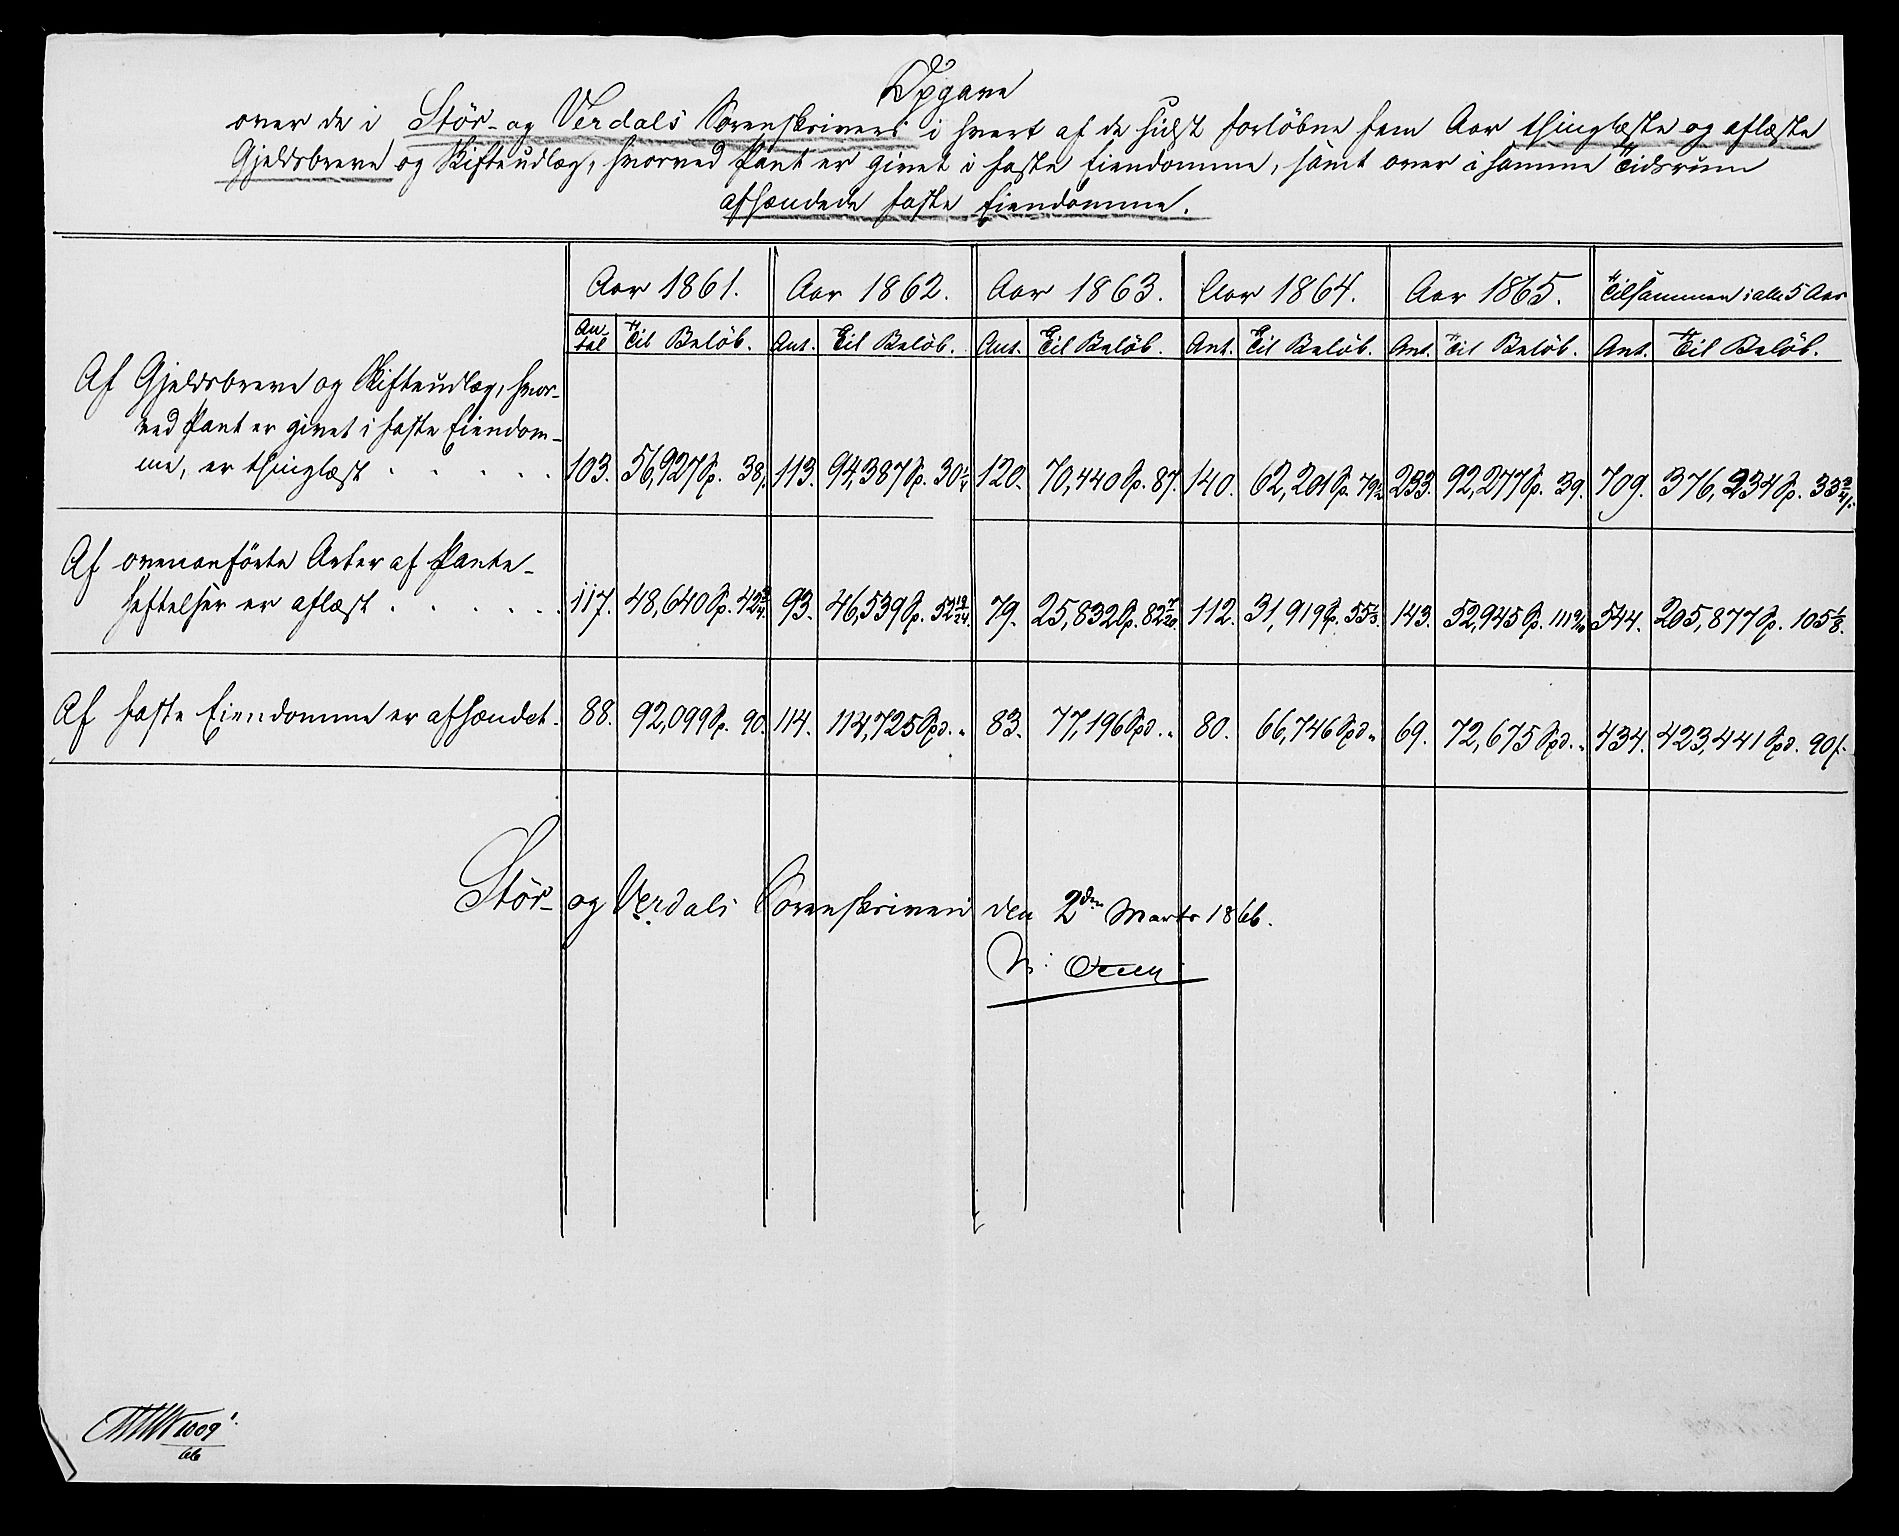 Opgave
over de i Stör- og Verdals Sorenskriveri i hvert af de sidst forløbne fem Aar thinglæste og aflæste
Gjeldsbreve og Skifteudlæg, hvorved Pant er givet i faste Eiendomme, samt over i samme Tidsrum
afhændede faste Eiendomme.
Aar 1861. Aar 1862. Aar 1863. Aar 1864. Aar 1865. Tilsammen i alle 5 Aar
An-
tal Til Beløb. Ant. Til Beløb. Ant. Til Beløb. Ant. Til Beløb. Ant. Til Beløb. Ant. Til Beløb.
Af Gjeldsbreve og Skifteudlæg, hvor-
ved Pant er givet i faste Eiendom-
me, er thinglæst . . . . . 103. 56,927 Sp. 38 113. 94,387 Sp. 30¼ 120. 70,440 Sp. 87. 140. 62,201 Sp. 79½ 233. 92,277 Sp. 39. 709. 376,234 Sp. 33¾
Af ovenanförte Arter af Pante-
heftelser er aflæst . . . . . 117. 48,640 Sp. 42¾ 93. 46,539 Sp. 52 19/24 79. 25,832 Sp. 82 7/20 112. 31,919 Sp. 55⅓ 143. 52,945 Sp. 111 9/10 544. 205,877 Sp. 105⅛.
Af faste Eiendomme er afhændet. 88. 92,099 Sp. 90. 114. 114,725 Spd. „ 83. 77,196 Spd. „ 80. 66,746 Spd „ 69. 72,675 Spd. „ 434. 423,441 Spd. 90 f.
Stör- og Verdals Sorenskriveri den 2den Marts 1866.
1009
66